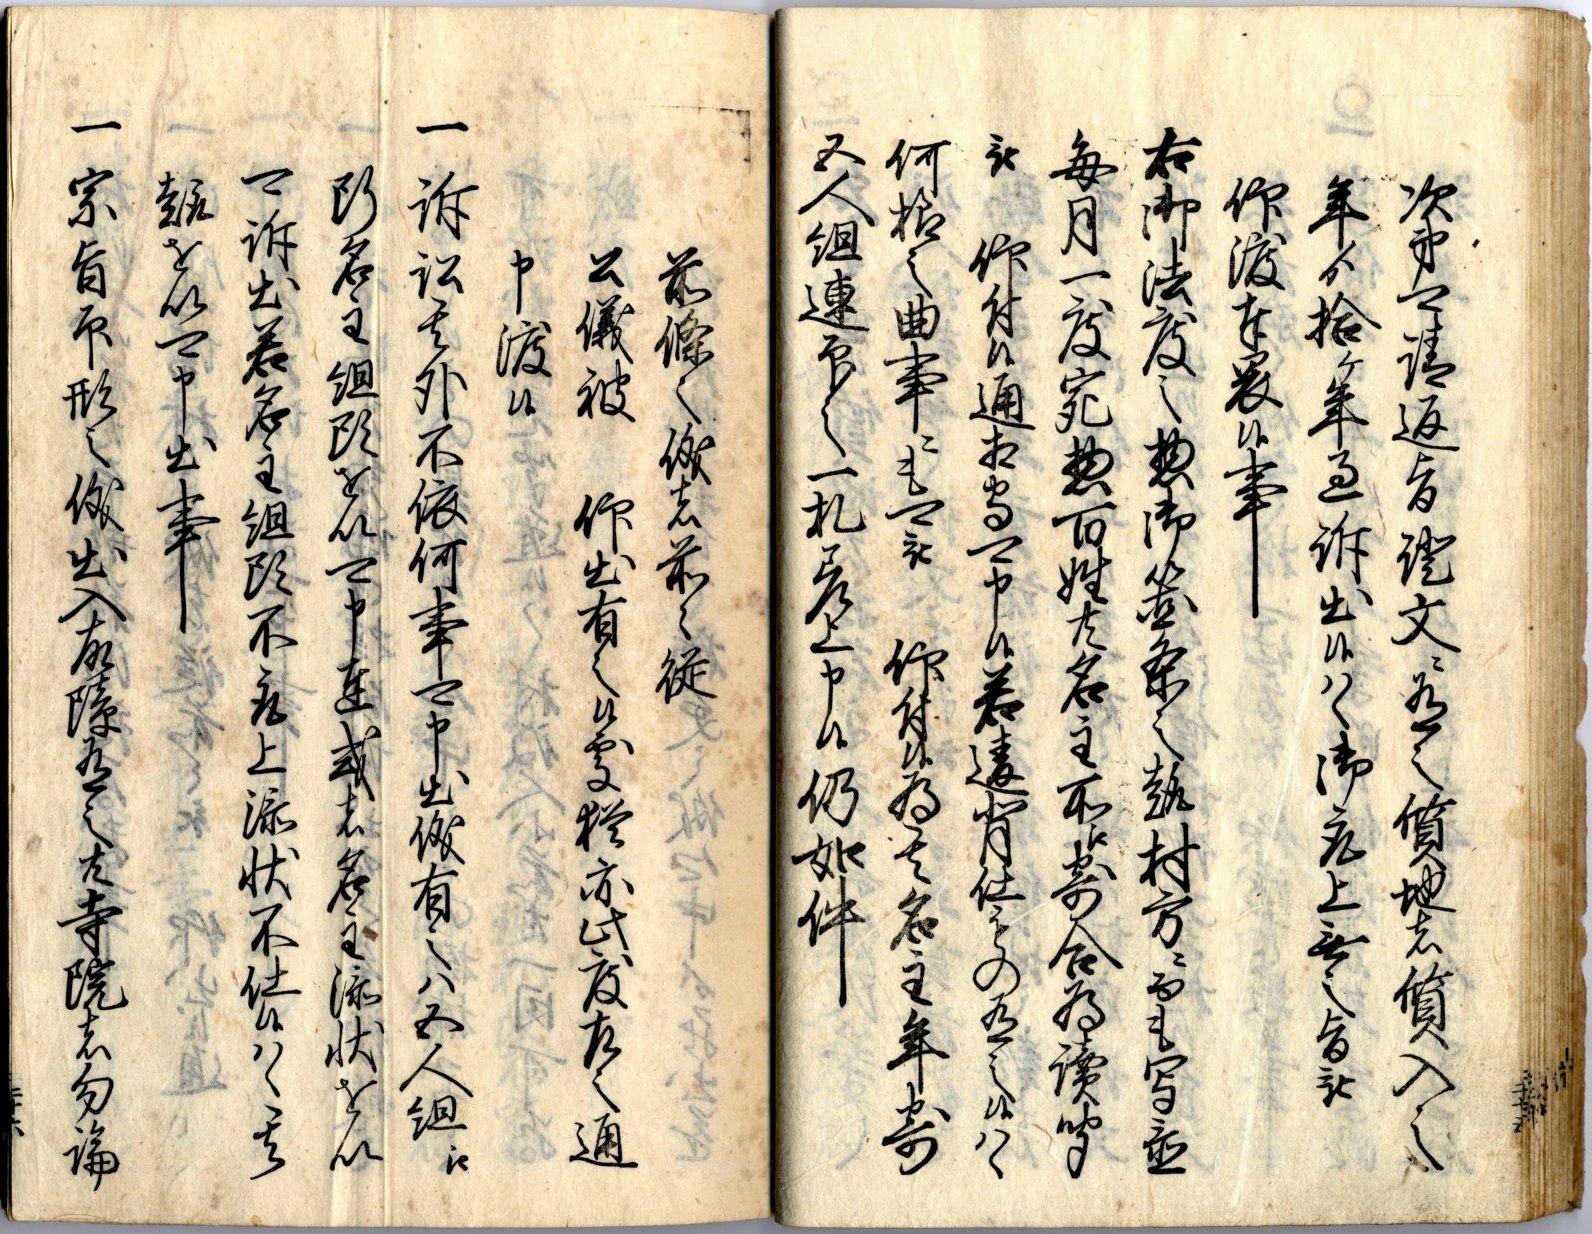 次第可請返旨証文ニ有之質地者質入之
年ゟ拾ヶ年過訴出候ハヽ御取上無之旨被
仰渡奉畏候事
右御法度之惣御箇条之趣村方ニ而も写置
毎月一度宛惣百姓共名主所江寄合為読聞
被 仰付候通相守可申候若違背仕もの有之候ハヽ
何様之曲事ニも可被 仰付候為其名主年寄
五人組連印之一札差上申候仍如件
前條之儀者前々従
公儀被 仰出有之候処猶亦此度左之通
申渡候
一 訴訟其外不依何事可申出儀有之ハ五人組江
断名主組頭を以可申達或者名主添状を以
可訴出若名主組頭不取上添状不仕候ハヽ其
趣を以可申出事
一 宗旨印形之儀出入故障有之共寺院者勿論